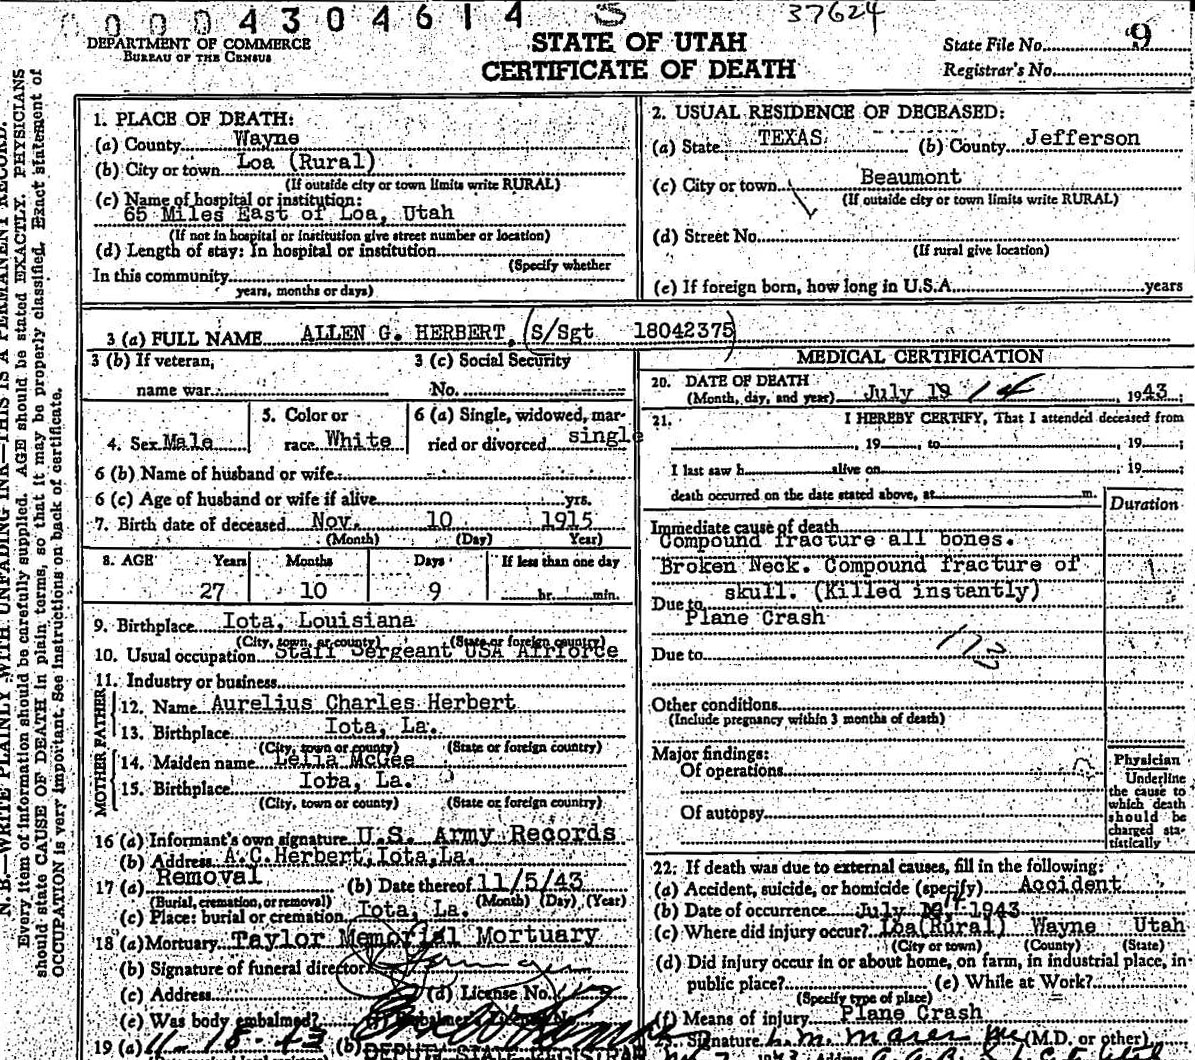 0004304614 S 37624
DEPARTMENT OF COMMERCE
BUREAU OF THE CENSUS
STATE OF UTAH
CERTIFICATE OF DEATH
State File No. 9
Registrar's No.
N. B.—WRITE PLAINLY WITH UNFADING INK—THIS IS A PERMANENT RECORD.
Every item of information should be carefully supplied. AGE should be stated EXACTLY. PHYSICIANS
should state CAUSE OF DEATH in plain terms, so that it may be properly classified. Exact statement of
OCCUPATION is very important. See instructions on back of certificate.
1. PLACE OF DEATH:
(a) County Wayne
(b) City or town Loa (Rural)
(If outside city or town limits write RURAL)
(c) Name of hospital or institution:
65 Miles East of Loa, Utah
(If not in hospital or institution give street number or location)
(d) Length of stay: In hospital or institution
(Specify whether
In this community
years, months or days)
2. USUAL RESIDENCE OF DECEASED:
(a) State TEXAS (b) County Jefferson
(c) City or town Beaumont
(If outside city or town limits write RURAL)
(d) Street No.
(If rural give location)
(e) If foreign born, how long in U.S.A. years
3 (a) FULL NAME ALLEN G. HERBERT, (S/Sgt 18042375)
3 (b) If veteran,
name war
3 (c) Social Security
No.
4. Sex Male
5. Color or
race White
6 (a) Single, widowed, mar-
ried or divorced single
6 (b) Name of husband or wife
6 (c) Age of husband or wife if alive yrs.
7. Birth date of deceased Nov. 10 1915
(Month) (Day) Year)
8. AGE Years Months Days If less than one day
27 10 9 hr. min.
9. Birthplace Iota, Louisiana
(City, town, or county) (State or foreign country)
10. Usual occupation Staff Sergeant USA Airforce
11. Industry or business
FATHER
12. Name Aurelius Charles Herbert
13. Birthplace Iota, La.
(City, town or county) (State or foreign country)
MOTHER
14. Maiden name Lelia McGee
15. Birthplace Iota, La.
(City, town or county) (State or foreign country)
16 (a) Informant's own signature U.S. Army Records
(b) Address A.C.Herbert, Iota, La.
17 (a) Removal (b) Date thereof 11/5/43
(Burial, cremation, or removal) (Month) (Day) (Year)
(c) Place: burial or cremation Iota, La.
18 (a) Mortuary Taylor Memorial Mortuary
(b) Signature of funeral director
(c) Address (d) License No.
(e) Was body embalmed?
19 (a) 11-18-43 (b)
DEPUTY STATE REGISTRAR
MEDICAL CERTIFICATION
20. DATE OF DEATH
(Month, day, and year) July 19 14, 1943;
21. I HEREBY CERTIFY, That I attended deceased from
, 19 , to , 19 ;
I last saw h alive on , 19 ;
death occurred on the date stated above, at m.
Duration
Immediate cause of death
Compound fracture all bones.
Broken Neck. Compound fracture of
skull. (Killed instantly)
Due to
Plane Crash
Due to
Other conditions
(Include pregnancy within 3 months of death)
Major findings:
Of operations
Of autopsy
Physician
Underline
the cause to
which death
should be
charged sta-
tistically
22. If death was due to external causes, fill in the following:
(a) Accident, suicide, or homicide (specify) Accident
(b) Date of occurrence July 19, 14 1943
(c) Where did injury occur? Loa(Rural) Wayne Utah
(City or town) (County) (State)
(d) Did injury occur in or about home, on farm, in industrial place, in
public place? (e) While at Work?
(Specify type of place)
(f) Means of injury Plane Crash
Signature (M.D. or other)
Address